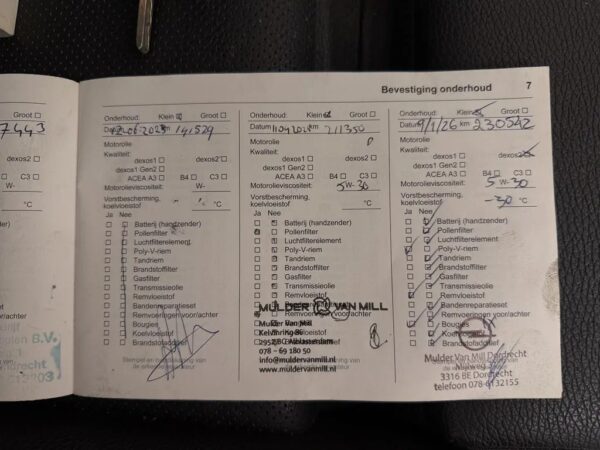 Bevestiging onderhoud 7
7443
Groot
C3
°C
B.V.
drecht
Onderhoud: Klein Groot
Datum km 141529
Motorolie
Kwaliteit:
dexos1 dexos2
dexos1 Gen2
ACEA A3 B4 C3
Motorolieviscositeit: W-
Vorstbescherming,
koelvloeistof °C
Ja Nee
Batterij (handzender)
Pollenfilter
Luchtfilterelement
Poly-V-riem
Tandriem
Brandstoffilter
Gasfilter
Transmissieolie
Remvloeistof
Bandenreparatieset
Remvoeringen voor/achter
Bougies
Koelvloeistof
Brandstofadditief
Stempel en handtekening van
Onderhoud: Klein Groot
Datum km 211350
Motorolie
Kwaliteit:
dexos1 dexos2
dexos1 Gen2
ACEA A3 B4 C3
Motorolieviscositeit: 5W-30
Vorstbescherming,
koelvloeistof °C
Ja Nee
Batterij (handzender)
Pollenfilter
Luchtfilterelement
Poly-V-riem
Tandriem
Brandstoffilter
Gasfilter
Transmissieolie
Remvloeistof
MULDER VAN MILL
Remvoeringen voor/achter
Mulder Van Mill
Alblasserdam
078 - 69 180 50
info@muldervanmill.nl
www.muldervanmill.nl
Onderhoud: Klein Groot
Datum 9/1/26 km 230542
Motorolie
Kwaliteit:
dexos1 dexos2
dexos1 Gen2
ACEA A3 B4 C3
Motorolieviscositeit: 5 W-30
Vorstbescherming,
koelvloeistof -30 °C
Ja Nee
Batterij (handzender)
Pollenfilter
Luchtfilterelement
Poly-V-riem
Tandriem
Brandstoffilter
Gasfilter
Transmissieolie
Remvloeistof
Bandenreparatieset
Remvoeringen voor/achter
Bougies
Koelvloeistof
Brandstofadditief
Mulder Van Mill Dordrecht
3316 BE Dordrecht
telefoon 078-6132155